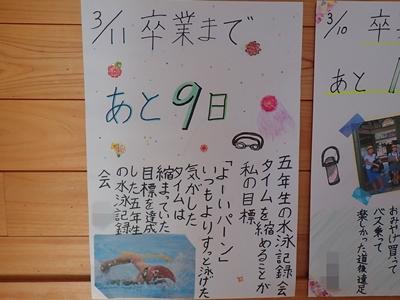 3/11 卒業まで
あと9日
五年生の水泳記録会
タイムを縮めることが
私の目標
「よーいパーン」
いつもよりずっと泳げた
気がした
タイムは
縮まっていた
目標を達成
した五年生
の水泳記録
会
3/10 卒
あと
おみやげ買って
バス乗って
楽しかった道後遠足